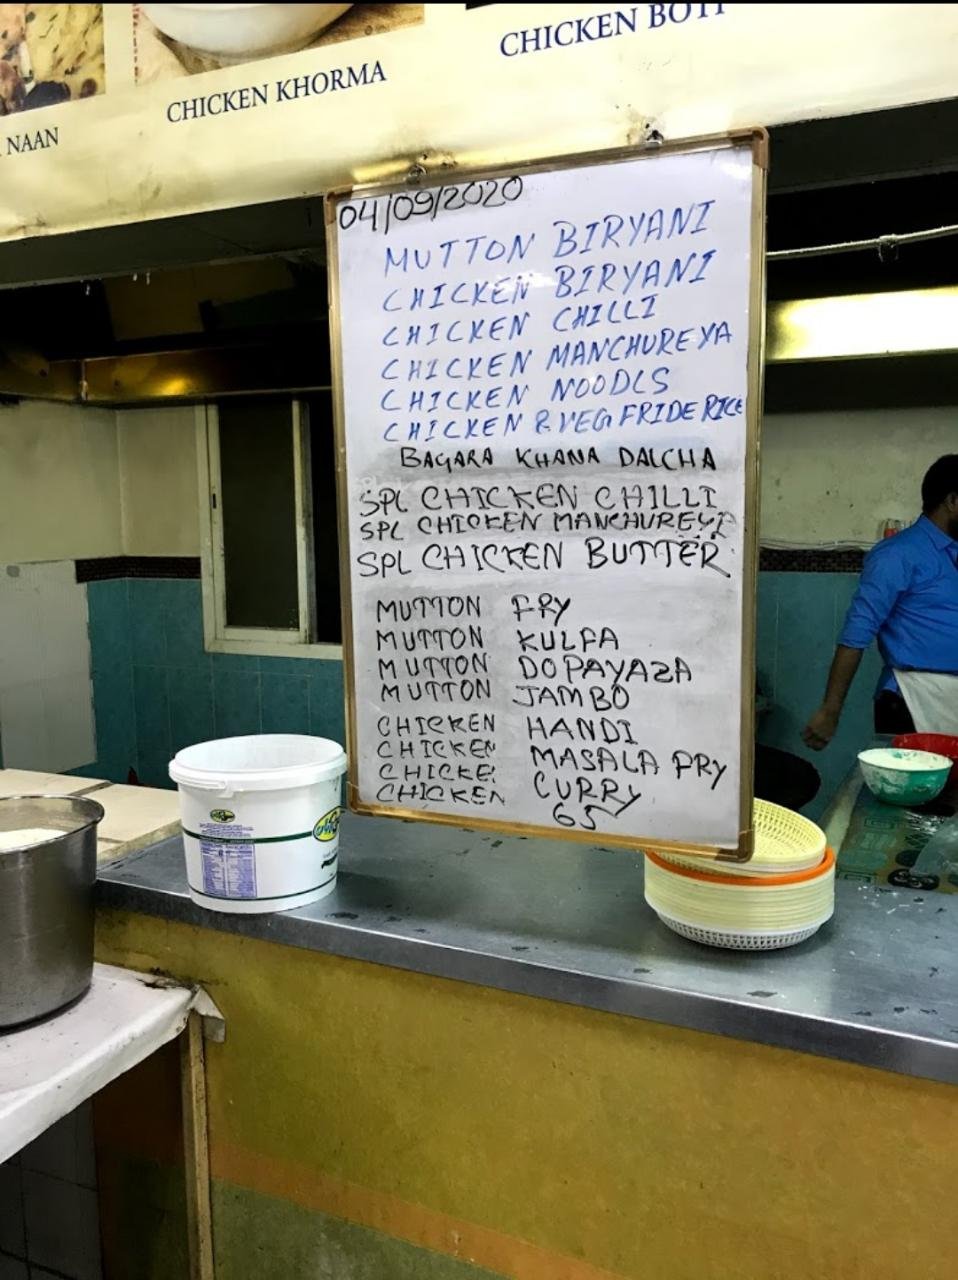 CHICKEN BOTI
CHICKEN KHORMA
NAAN
04/09/2020
MUTTON BIRYANI
CHICKEN BIRYANI
CHICKEN CHILLI
CHICKEN MANCHUREYA
CHICKEN NOODLS
CHICKEN & VEG FRIDE RICE
BAGARA KHANA DALCHA
SPL CHICKEN CHILLI
SPL CHICKEN MANCHUREYA
SPL CHICKEN BUTTER
MUTTON FRY
MUTTON KULFA
MUTTON DOPAYAZA
MUTTON JAMBO
CHICKEN HANDI
CHICKEN MASALA FRY
CHICKEN CURRY
CHICKEN 65